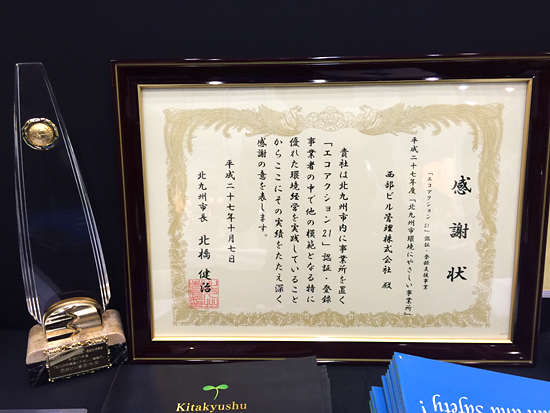 感謝状
「エコアクション21」認証・登録支援事業
平成二十七年度「北九州市環境にやさしい事業所」
西部ビル管理株式会社 殿
貴社は北九州市内に事業所を置く
「エコアクション21」認証・登録
事業者の中で他の模範となる特に
優れた環境経営を実践していること
からここにその実績をたたえ深く
感謝の意を表します。
平成二十七年十月七日
北九州市長 北橋健治
Kitakyushu
and Safety!